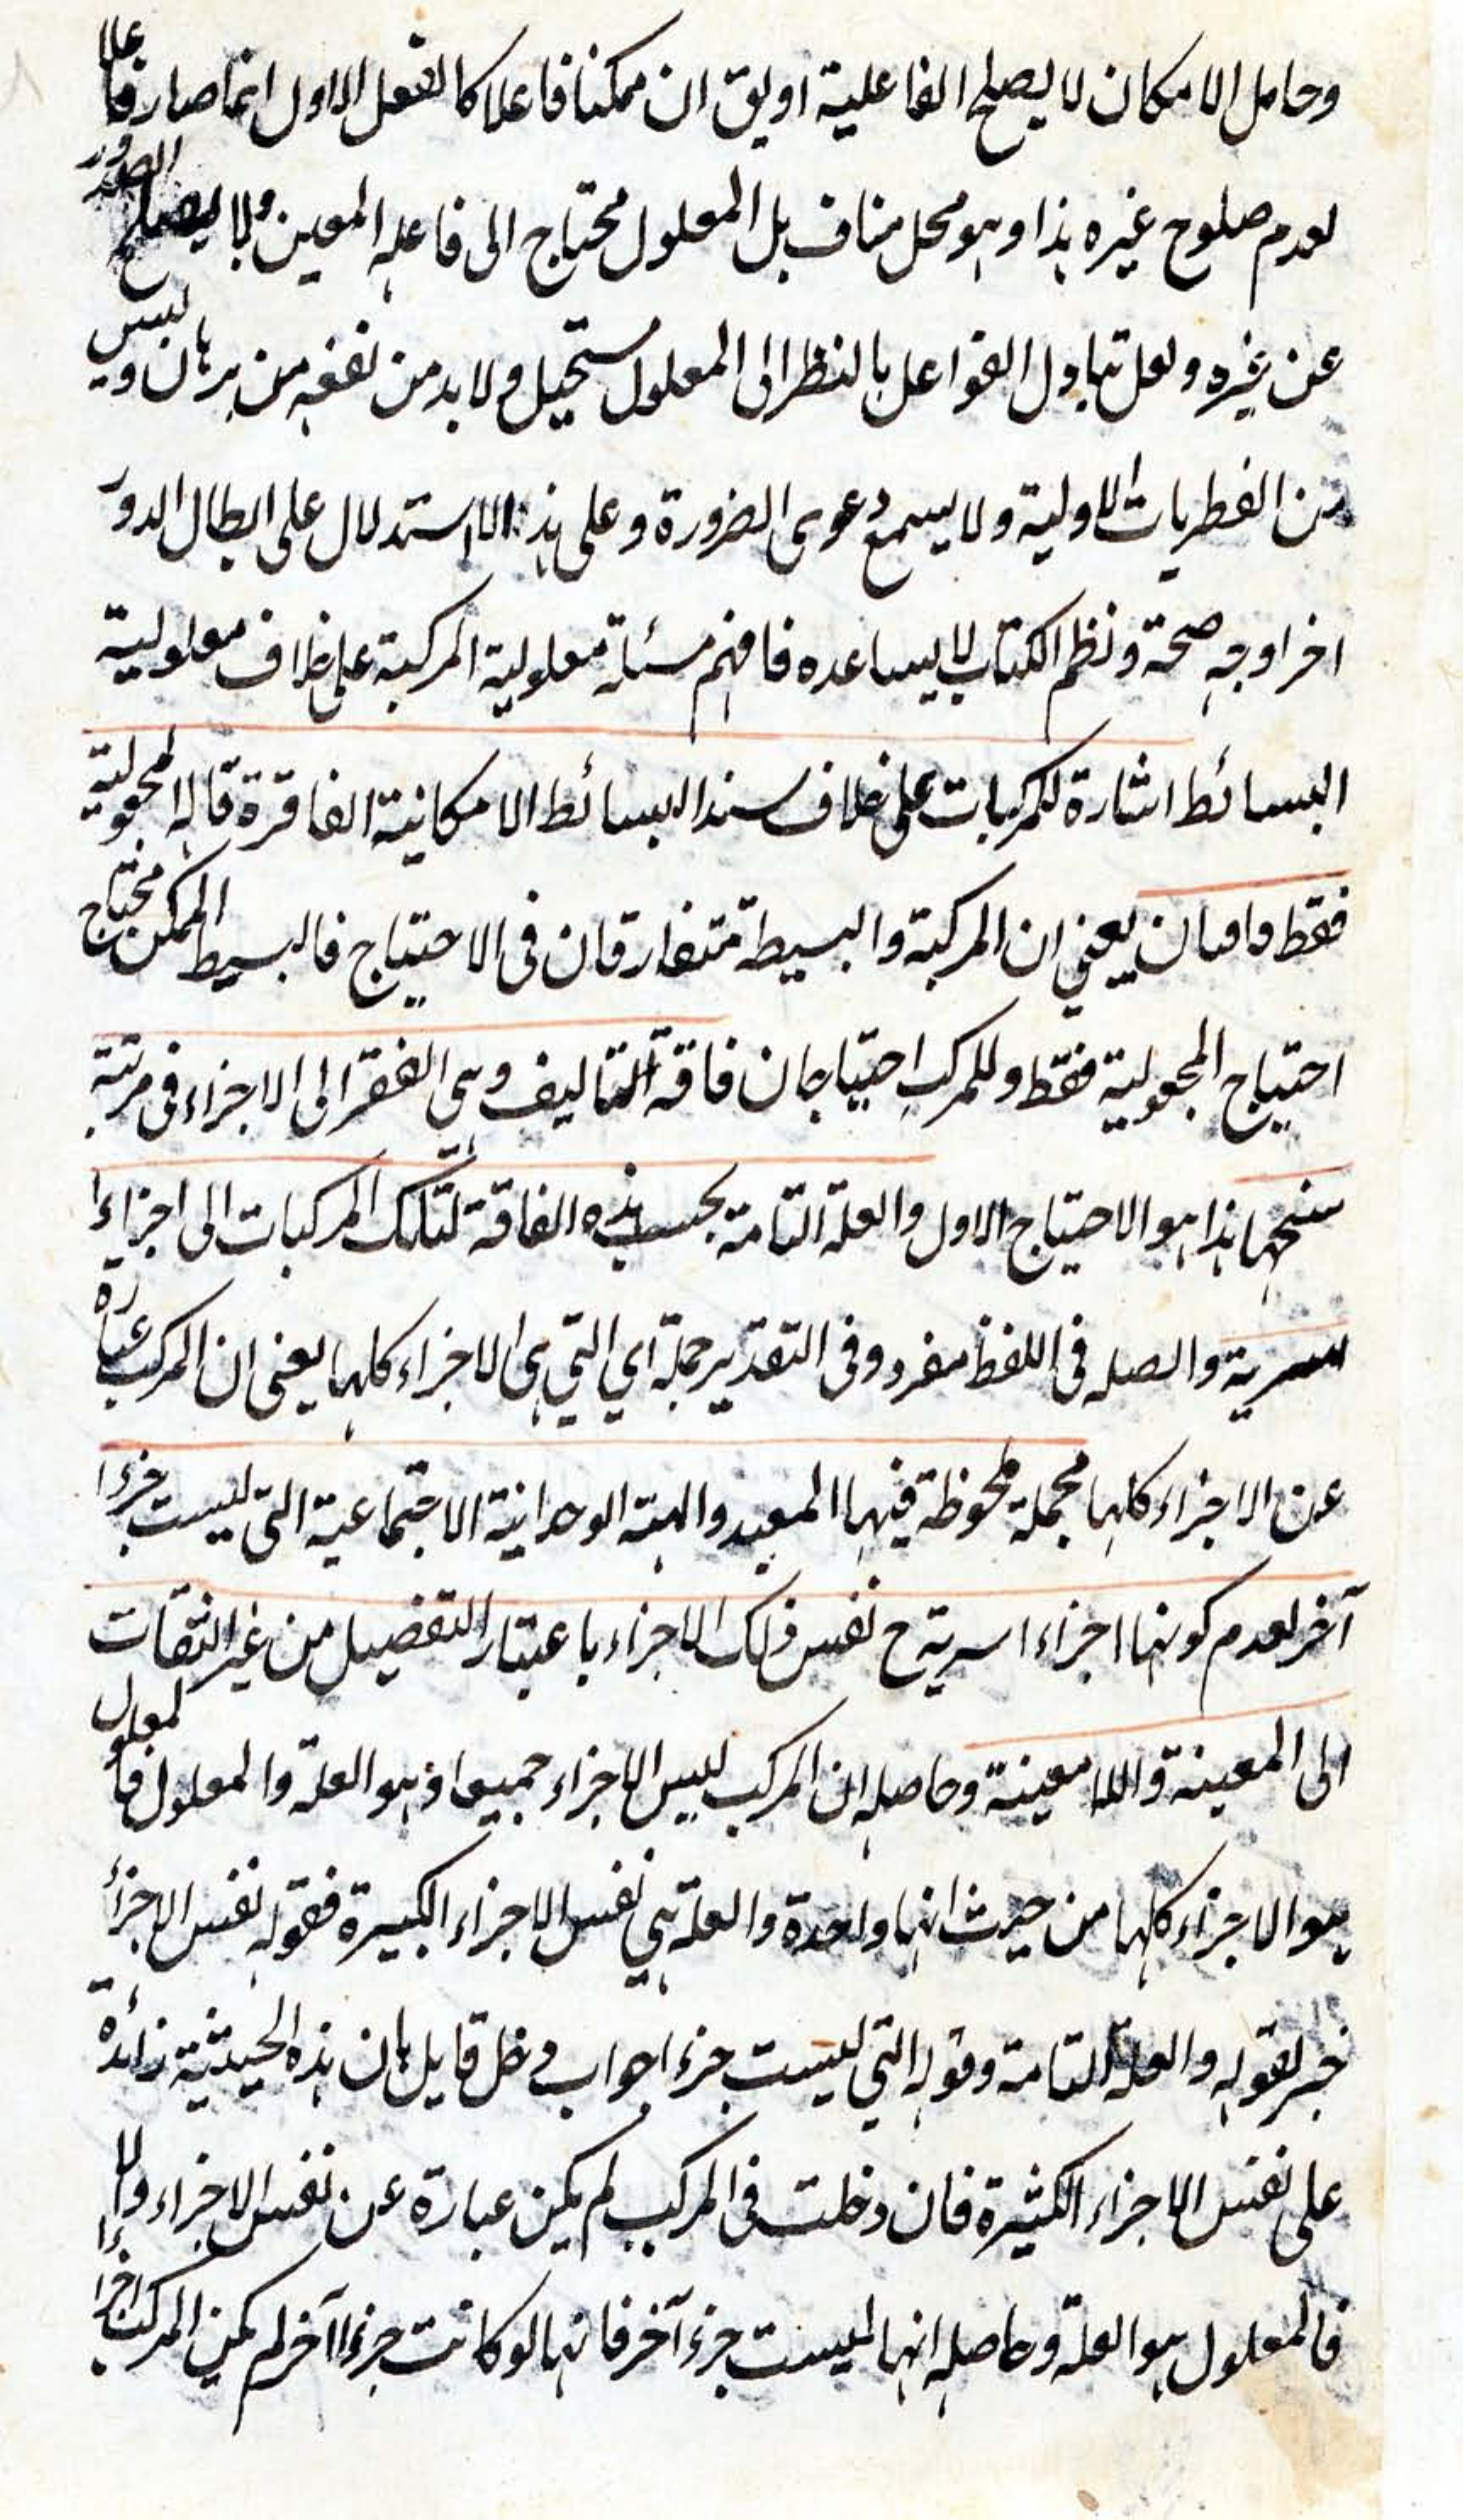 وحامل الامكان لا يصلح الفاعلية او يق ان ممكنا فاعلا كالفعل الاول انما صار فاعلا
لعدم صلوح غيره هذا وهو محل مناف بل المعلول محتاج الى فاعله المعين ولا يصلح الصدور
عن غيره ولعل تبادل الفواعل بالنظر الى المعلول مستحيل ولا بد من نفيه من برهان وليس
من الفطريات الاولية ولا يسمع دعوى الضرورة وعلى هذا الاستدلال على ابطال الدور
اخر اوجه صحة ونظم الكتاب لا يساعده فافهم مسئلة معلولية المركبة على خلاف معلولية
البسائط اشارة للمركبات على خلاف سند البسائط الامكانية الفاقرة قاله المجعولية
فقط فاقتان يعني ان المركبة والبسيطة متفارقان فى الاحتياج فالبسيط الممكن محتاج
احتياج المجعولية فقط وللمركب احتياجان فاقة التاليف وهي الفقر الى الاجزاء فى مرتبة
سنخها هذا هو الاحتياج الاول والعلة التامة بحسب هذه الفاقة لتلك المركبات الى اجزاءا
اسرية والصله فى اللفظ مفرد وفى التقدير جملة اي التي هى الاجزاء كلها يعنى ان المركب عبارة
عن الاجزاء كلها مجملة ملحوظة فيها المعية والهيئة الوحدانية الاجتماعية التى ليست جزءا
آخر لعدم كونها اجزاء اسرية ح نفس ذلك الاجزاء باعتبار التفصيل من غير التفات
الى المعينة واللا معينة وحاصله ان المركب ليس الاجزاء جميعا اذ هو العلة والمعلول فالمعلول
هو الاجزاء كلها من حيث انها واحدة والعلة هي نفس الاجزاء الكثيرة فقوله نفس الاجزاء
خبر لقوله والعلة التامة وقوله التي ليست جزءا جواب دخل قايل بان هذه الحيثية زائدة
على نفس الاجزاء الكثيرة فان دخلت فى المركب لم يكن عبارة عن نفس الاجزاء والا
فالمعلول هو العلة وحاصله انها ليست جزء آخر فانها لو كانت جزءا آخر لم يكن المركب اجزاءا